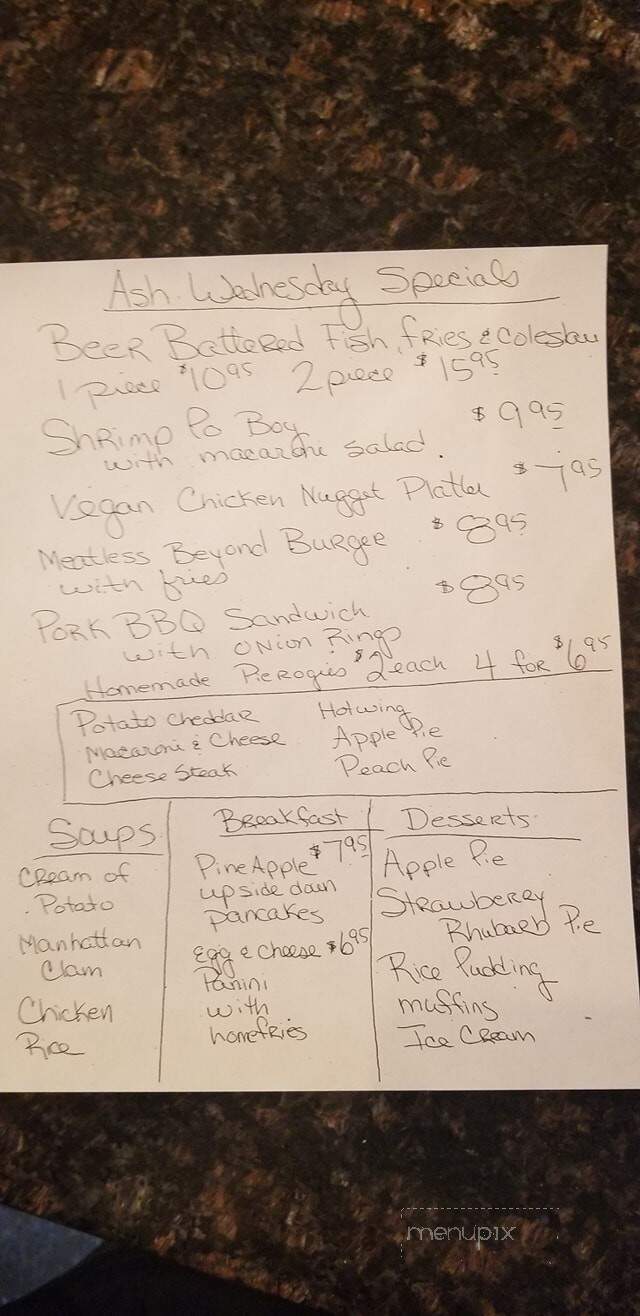 Ash Wednesday Specials
Beer Battered Fish, fries & Coleslaw
1 piece $10.95 2 piece $15.95
Shrimp Po Boy $9.95
with macaroni salad.
Vegan Chicken Nugget Platter $7.95
Meatless Beyond Burger $8.95
with fries
Pork BBQ Sandwich $8.95
with onion Rings
Homemade Pierogies $2 each 4 for $6.95
Potato cheddar Hotwing
Macaroni & Cheese Apple Pie
Cheese Steak Peach Pie
Soups
Cream of
Potato
Manhattan
Clam
Chicken
Rice
Breakfast
PineApple $7.95
upside down
pancakes
Egg & Cheese $6.95
Panini
with
homefries
Desserts
Apple Pie
Strawberry
Rhubarb Pie
Rice Pudding
muffins
Ice Cream
menupix